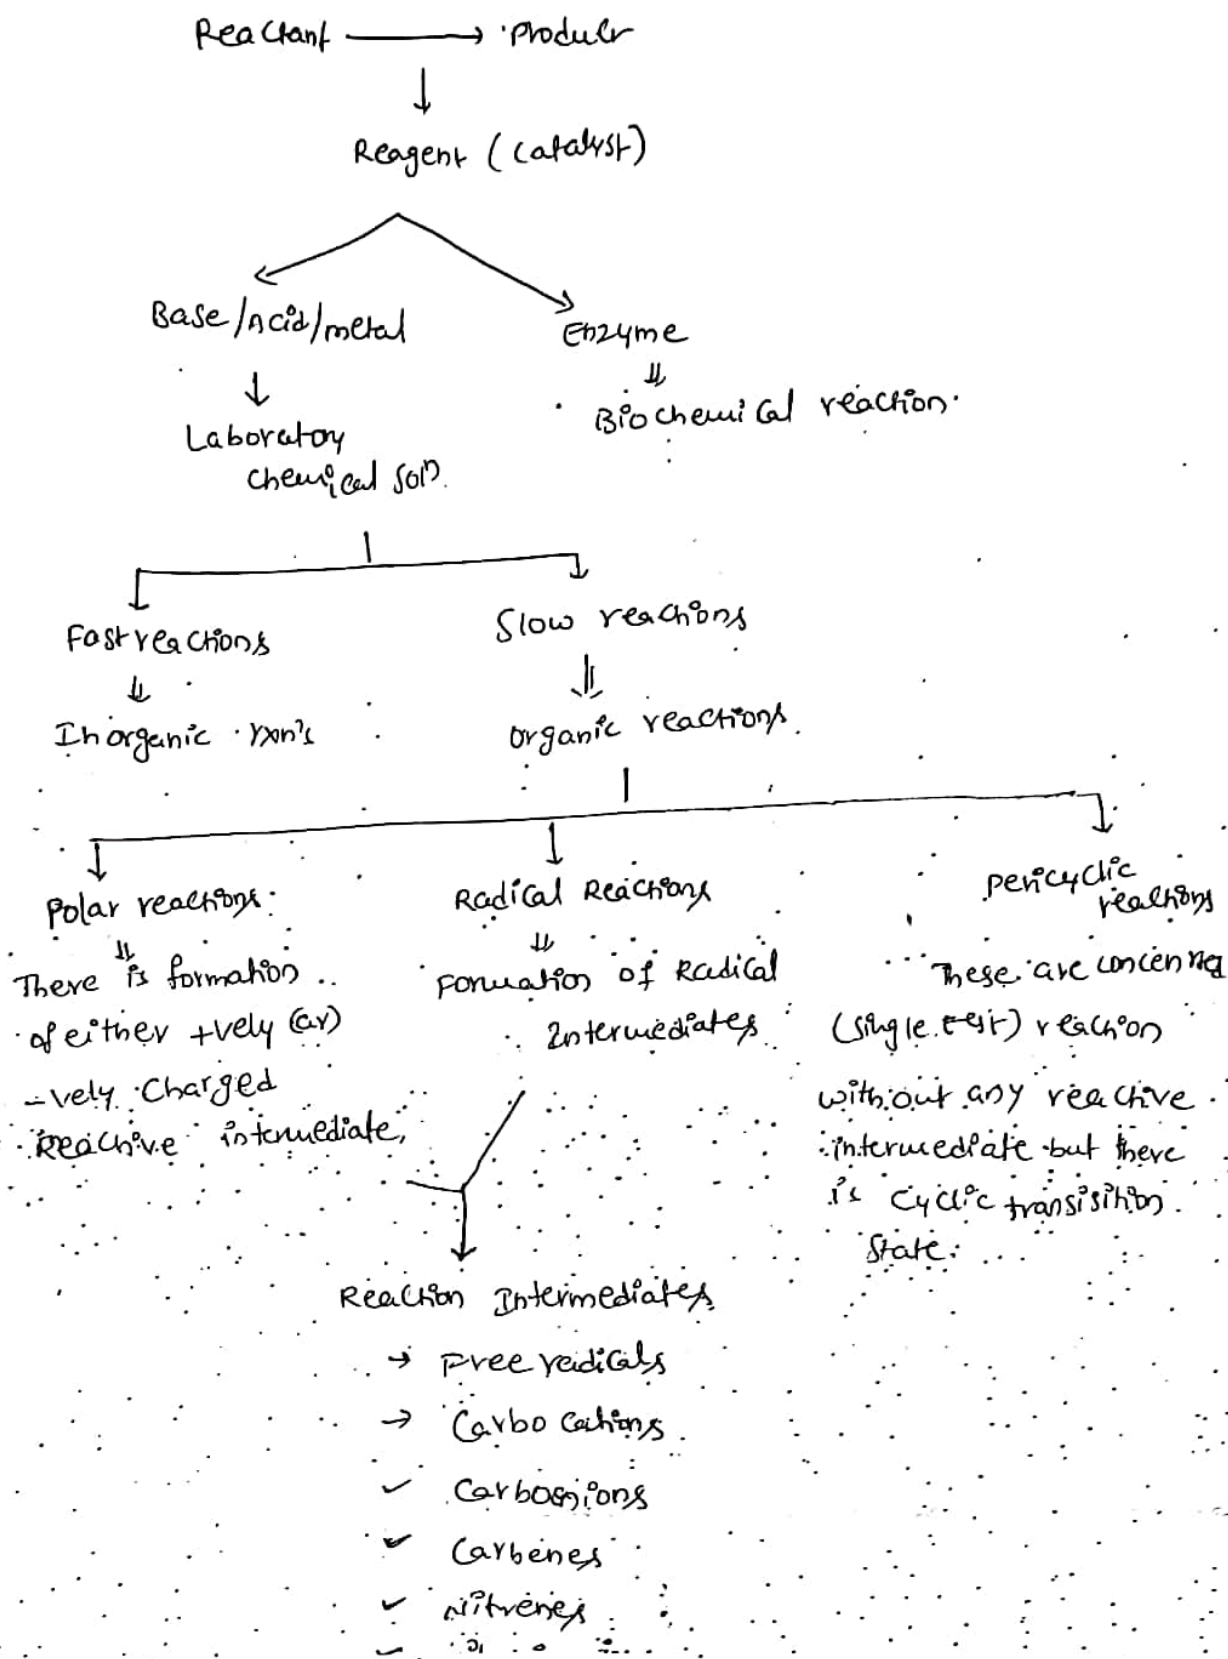 Reactant → Product
Reagent (Catalyst)
Base/Acid/metal
Enzyme
Laboratory
chemical soln.
Biochemical reaction.
Fast reactions
Slow reactions
Inorganic rxn's
organic reactions.
Polar reactions:
There is formation
of either +vely (or)
-vely charged
Reactive intermediate,
Radical Reactions
Formation of Radical
Intermediates
pericyclic
reactions
These are concerned
(single) reaction
without any reactive
intermediate but there
is cyclic transisition
state.
Reaction Intermediates
→ Free radicals
→ Carbo cations.
✓ Carboanions
✓ Carbenes
✓ Nitrenes